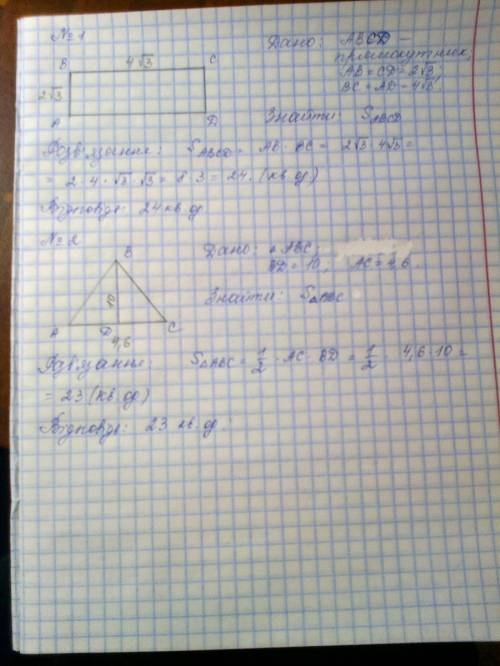 №1
Дано: ABCD –
прямокутник,
AB = CD = 2√3
BC = AD = 4√3
B 4√3 C
2√3
A D
Знайти: S ABCD
Розв'язання: S ABCD = AB · BC = 2√3 · 4√3 =
= 2 · 4 · √3 · √3 = 8 · 3 = 24 (кв. од)
Відповідь: 24 кв. од.
№2
Дано: △ABC;
BD = 10; AC = 4,6.
Знайти: S△ABC
B
10
A D C
4,6
Розв'язання: S△ABC = 1/2 · AC · BD = 1/2 · 4,6 · 10 =
= 23 (кв. од)
Відповідь: 23 кв. од.